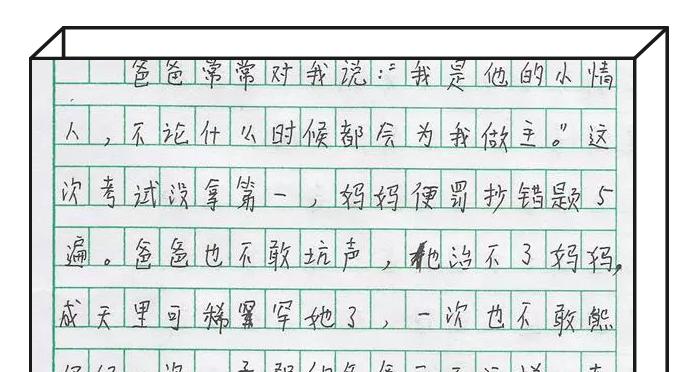 爸爸常常对我说:“我是他的小情
人,不论什么时候都会为我做主。”这
次考试没拿第一,妈妈便罚抄错题5
遍。爸爸也不敢坑声,他治不了妈妈,
成天里可稀罕她了,一次也不敢熊